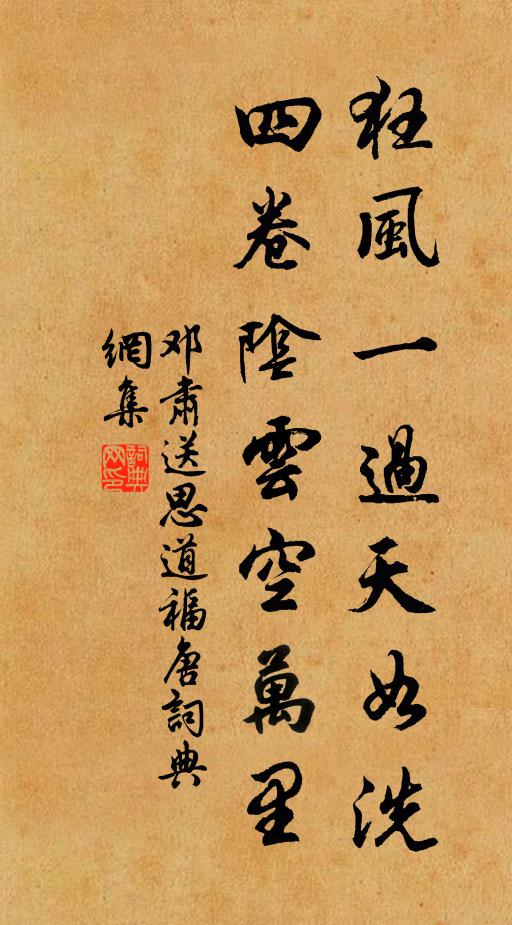 狂風一過天如洗
四卷陰雲空萬里
邓肅送思道福唐詞典
網集
詞典
网印